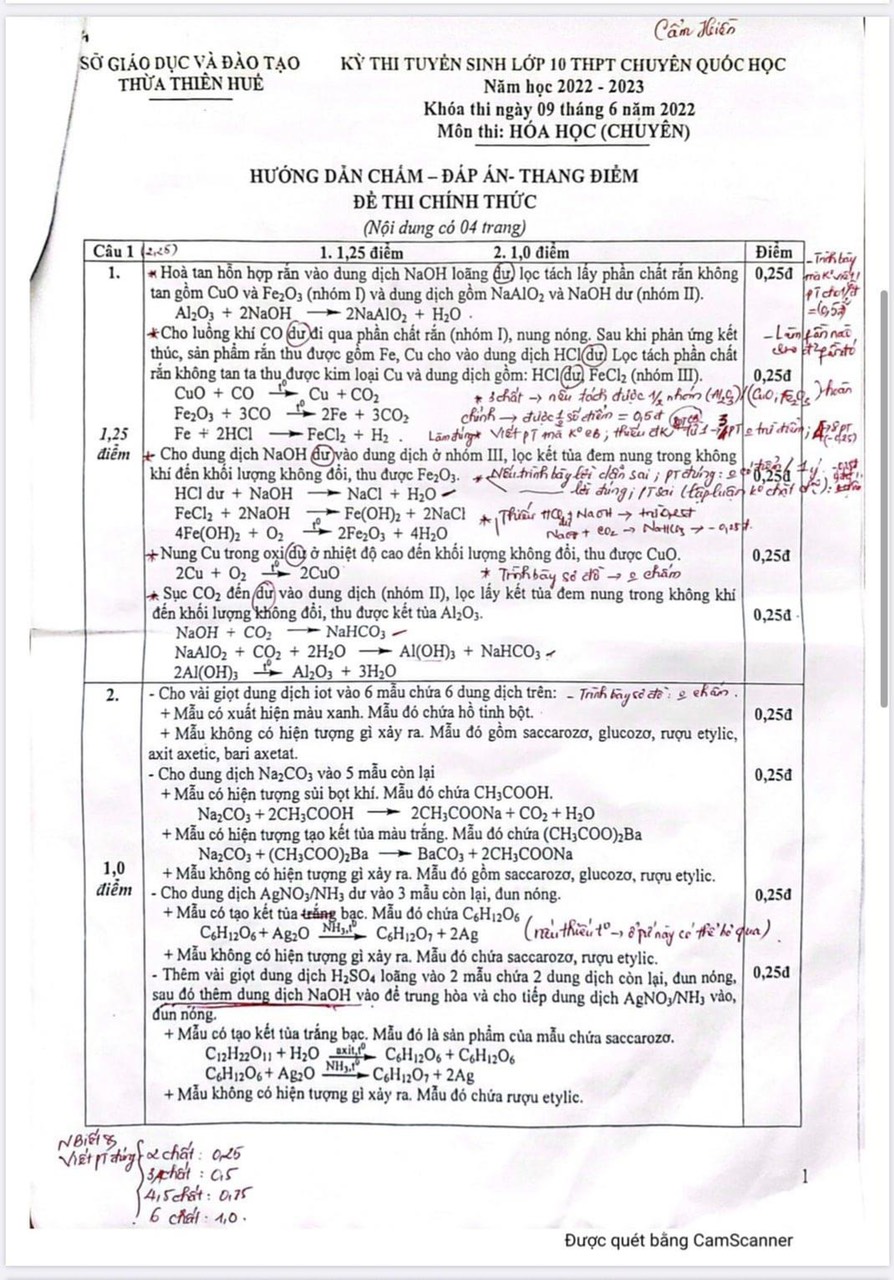 Cẩm Hiền
SỞ GIÁO DỤC VÀ ĐÀO TẠO
THỪA THIÊN HUẾ
KỲ THI TUYỂN SINH LỚP 10 THPT CHUYÊN QUỐC HỌC
Năm học 2022 - 2023
Khóa thi ngày 09 tháng 6 năm 2022
Môn thi: HÓA HỌC (CHUYÊN)
HƯỚNG DẪN CHẤM – ĐÁP ÁN- THANG ĐIỂM
ĐỀ THI CHÍNH THỨC
(Nội dung có 04 trang)
Câu 1 (2,25) 1. 1,25 điểm 2. 1,0 điểm Điểm
1. * Hoà tan hỗn hợp rắn vào dung dịch NaOH loãng dư, lọc tách lấy phần chất rắn không 0,25đ
tan gồm CuO và Fe₂O₃ (nhóm I) và dung dịch gồm NaAlO₂ và NaOH dư (nhóm II).
Al₂O₃ + 2NaOH ⟶ 2NaAlO₂ + H₂O .
* Cho luồng khí CO dư đi qua phần chất rắn (nhóm I), nung nóng. Sau khi phản ứng kết
thúc, sản phẩm rắn thu được gồm Fe, Cu cho vào dung dịch HCl dư. Lọc tách phần chất
rắn không tan ta thu được kim loại Cu và dung dịch gồm: HCl dư, FeCl₂ (nhóm III). 0,25đ
CuO + CO ⟶ᵗ⁰ Cu + CO₂
Fe₂O₃ + 3CO ⟶ᵗ⁰ 2Fe + 3CO₂
Fe + 2HCl ⟶ FeCl₂ + H₂ .
1,25
điểm
* Cho dung dịch NaOH dư vào dung dịch ở nhóm III, lọc kết tủa đem nung trong không
khí đến khối lượng không đổi, thu được Fe₂O₃. 0,25đ
HCl dư + NaOH ⟶ NaCl + H₂O
FeCl₂ + 2NaOH ⟶ Fe(OH)₂ + 2NaCl
4Fe(OH)₂ + O₂ ⟶ᵗ⁰ 2Fe₂O₃ + 4H₂O
* Nung Cu trong oxi dư ở nhiệt độ cao đến khối lượng không đổi, thu được CuO. 0,25đ
2Cu + O₂ ⟶ᵗ⁰ 2CuO * Trình bày sơ đồ → 0 chấm
* Sục CO₂ đến dư vào dung dịch (nhóm II), lọc lấy kết tủa đem nung trong không khí
đến khối lượng không đổi, thu được kết tủa Al₂O₃. 0,25đ
NaOH + CO₂ ⟶ NaHCO₃
NaAlO₂ + CO₂ + 2H₂O ⟶ Al(OH)₃ + NaHCO₃
2Al(OH)₃ ⟶ᵗ⁰ Al₂O₃ + 3H₂O
2. - Cho vài giọt dung dịch iot vào 6 mẫu chứa 6 dung dịch trên: - Trình bày sơ đồ: 0 chấm.
+ Mẫu có xuất hiện màu xanh. Mẫu đó chứa hồ tinh bột. 0,25đ
+ Mẫu không có hiện tượng gì xảy ra. Mẫu đó gồm saccarozơ, glucozơ, rượu etylic,
axit axetic, bari axetat.
- Cho dung dịch Na₂CO₃ vào 5 mẫu còn lại 0,25đ
+ Mẫu có hiện tượng sủi bọt khí. Mẫu đó chứa CH₃COOH.
Na₂CO₃ + 2CH₃COOH ⟶ 2CH₃COONa + CO₂ + H₂O
+ Mẫu có hiện tượng tạo kết tủa màu trắng. Mẫu đó chứa (CH₃COO)₂Ba
Na₂CO₃ + (CH₃COO)₂Ba ⟶ BaCO₃ + 2CH₃COONa
1,0
điểm
+ Mẫu không có hiện tượng gì xảy ra. Mẫu đó gồm saccarozơ, glucozơ, rượu etylic.
- Cho dung dịch AgNO₃/NH₃ dư vào 3 mẫu còn lại, đun nóng. 0,25đ
+ Mẫu có tạo kết tủa trắng bạc. Mẫu đó chứa C₆H₁₂O₆
C₆H₁₂O₆ + Ag₂O ⟶ᴺᴴ³,ᵗ⁰ C₆H₁₂O₇ + 2Ag (nếu thiếu t⁰ → ở pt này có thể bỏ qua)
+ Mẫu không có hiện tượng gì xảy ra. Mẫu đó chứa saccarozơ, rượu etylic.
- Thêm vài giọt dung dịch H₂SO₄ loãng vào 2 mẫu chứa 2 dung dịch còn lại, đun nóng, 0,25đ
sau đó thêm dung dịch NaOH vào để trung hòa và cho tiếp dung dịch AgNO₃/NH₃ vào,
đun nóng.
+ Mẫu có tạo kết tủa trắng bạc. Mẫu đó là sản phẩm của mẫu chứa saccarozơ.
C₁₂H₂₂O₁₁ + H₂O ⟶ᵃˣⁱᵗ,ᵗ⁰ C₆H₁₂O₆ + C₆H₁₂O₆
C₆H₁₂O₆ + Ag₂O ⟶ᴺᴴ³,ᵗ⁰ C₆H₁₂O₇ + 2Ag
+ Mẫu không có hiện tượng gì xảy ra. Mẫu đó chứa rượu etylic.
N Biết &
Viết pt đúng { 2 chất : 0,25
3 chất : 0,5
4,5 chất : 0,75
6 chất : 1,0.
1
Được quét bằng CamScanner